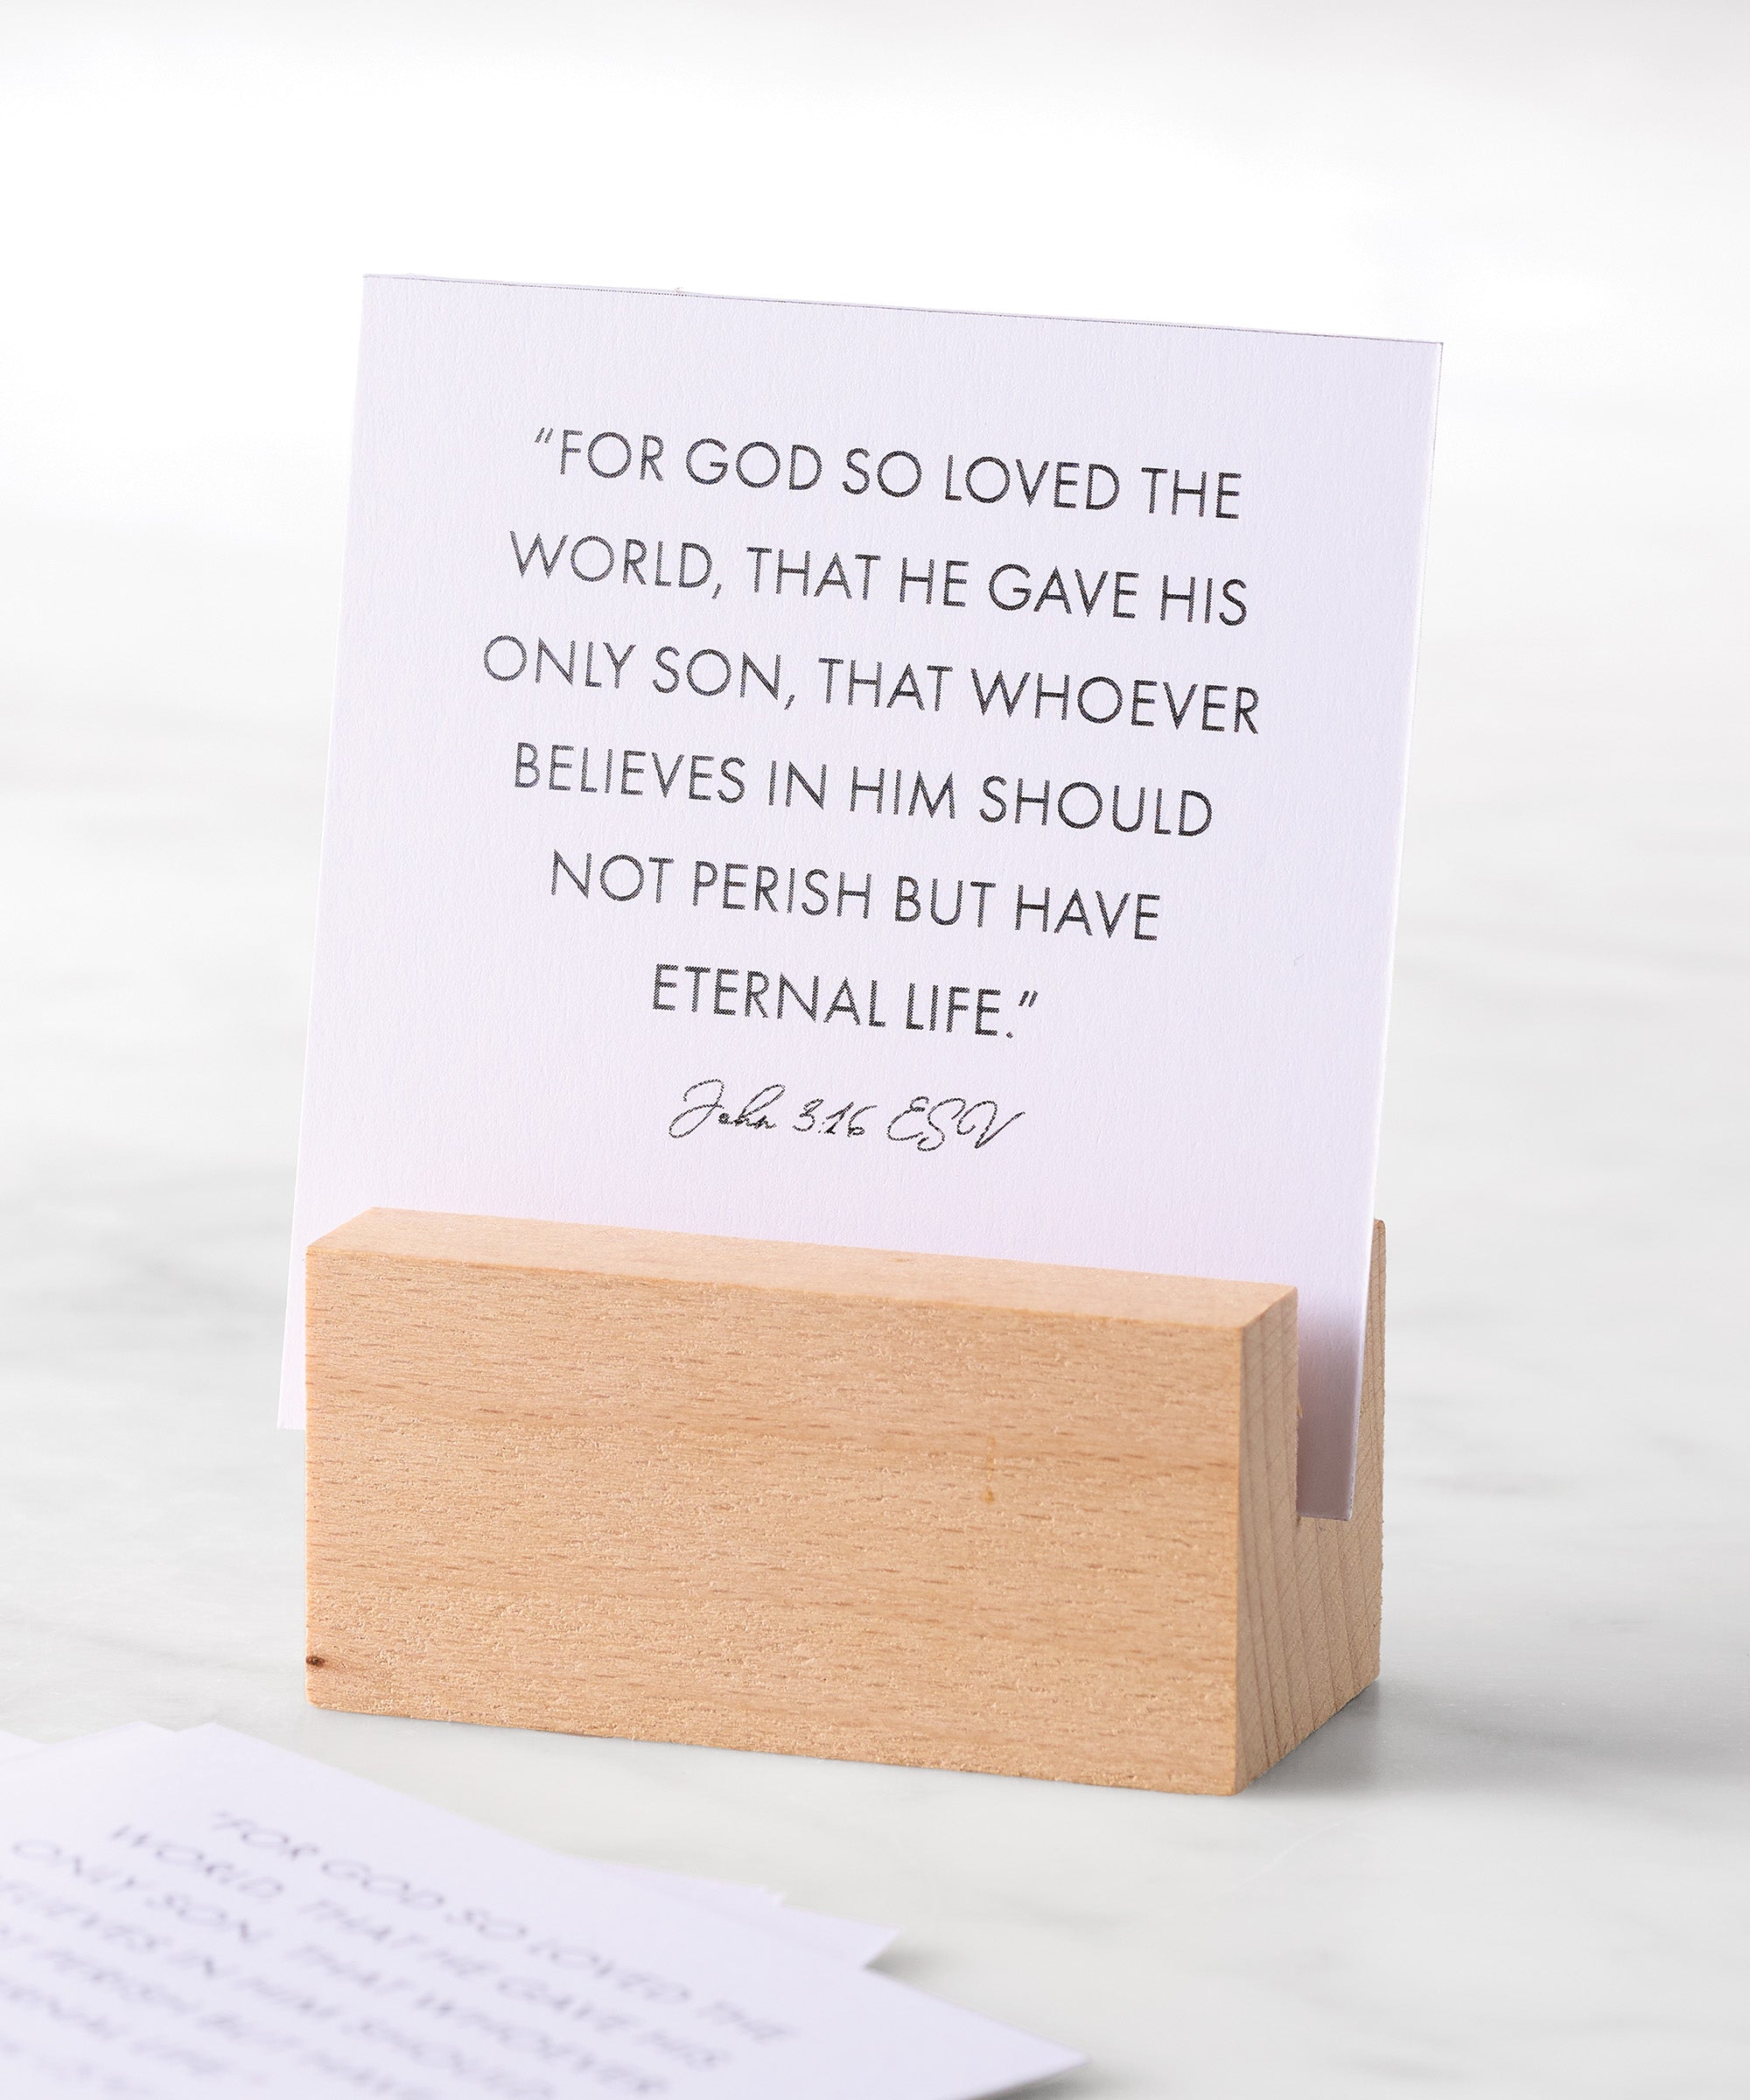 “FOR GOD SO LOVED THE
WORLD, THAT HE GAVE HIS
ONLY SON, THAT WHOEVER
BELIEVES IN HIM SHOULD
NOT PERISH BUT HAVE
ETERNAL LIFE.”
John 3:16 ESV
"FOR GOD SO LOVED THE
WORLD, THAT HE GAVE HIS
ONLY SON, THAT WHOEVER
IN HIM SHOULD
PERISH BUT HAVE
LIFE."